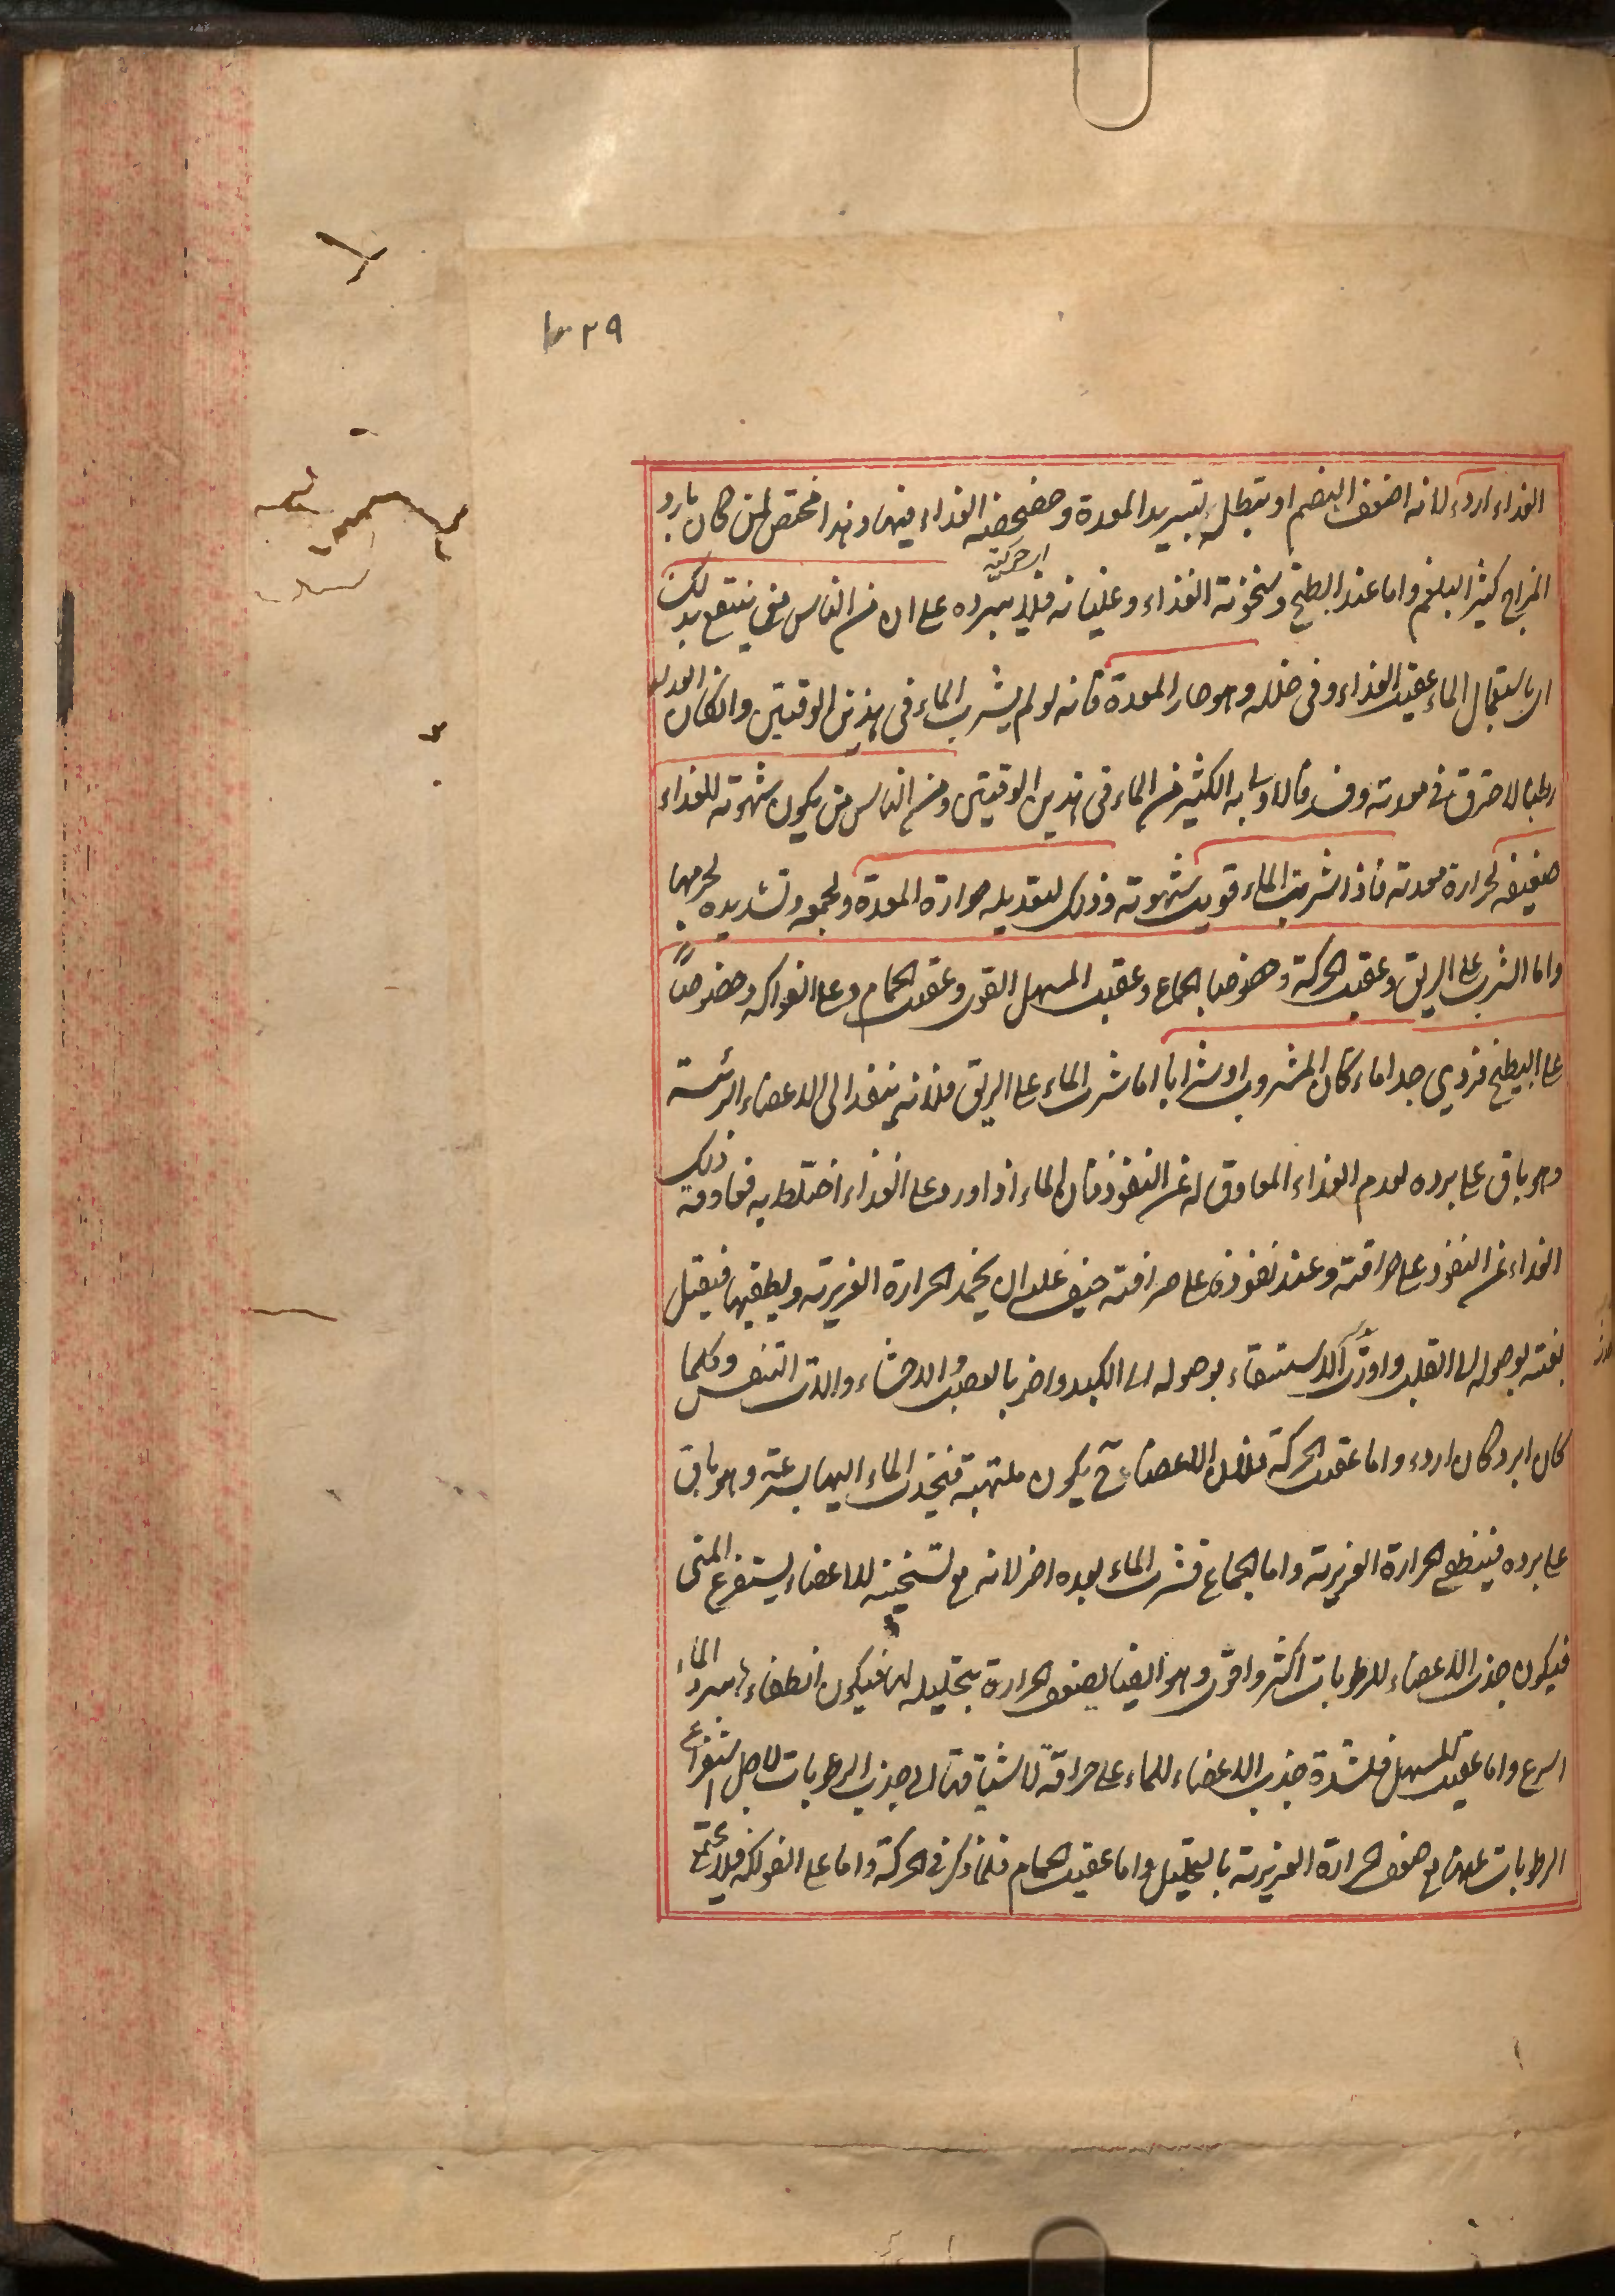 ٢٩
الغذاء اردء لانه اضعف الهضم او يبطل بتبريد المعدة وخضخضة الغذاء فيها وهذا مختص لمن كان بارد
المزاج كثير البلغم واما عند البطيخ وسخونة الغذاء وغليانه فلا يبرده على ان من الناس من ينتفع بذلك
اى حركته
اى باستعمال الماء عقيب الغذاء وفى خلله وهو حار المعدة فانه لو لم يشرب الماء فى هذين الوقتين وان كان الغذاء
رطبا لاحترق فى معدته وفسد فالاولى به الكثير من الماء فى هذين الوقتين ومن الناس من يكون شهوته للغذاء
ضعيفة لحرارة معدته فاذا شرب الماء قويت شهوته وذلك لتعديله حرارة المعدة ولجمعه وتشديده لجرمها
واما الشرب على الريق وعقيب الحركة وخصوصا الجماع وعقيب المسهل القوى وعقيب الحمام وعلى الفواكه وخصوصاً
على البطيخ فردي جدا ماء كان المشروب او شرابا اما شرب الماء على الريق فلانه ينفذ الى الاعضاء الرئيسة
وهو باق على برده لعدم الغذاء المعاوق له عن النفوذ فان الماء اذا ورد على الغذاء اختلط به فعاوقه ذلك
الغذاء عن النفوذ على صرافته وعند نفوذه على صرافته خيف عليه ان يخمد الحرارة الغريزية ويطفيها فيقتل
بغتة بوصوله الى القلب واورث الاستسقاء بوصوله الى الكبد واضر بالعصب والاحشاء والات التنفس وكلما
كان ابرد كان اردء واما عقيب الحركة فلان الاعضاء ح يكون ملتهبة فيجذب الماء اليها بسرعة وهو باق
على برده فينطفى الحرارة الغريزية واما الجماع فشرب الماء بعده اضر لانه مع تسخينه للاعضاء يستفرغ المنى
فيكون جذب الاعضاء للرطوبات اكثر واقوى وهو ايضا يضعف الحرارة بتحليله لها فيكون انطفاءها ببرد الماء
اسرع واما عقيب المسهل فلشدة جذب الاعضاء للماء على صرافته لاشتياقها الى جذب الرطوبات لاجل استفراغ
الرطوبات عنها مع ضعف الحرارة الغريزية بالتحليل واما عقيب الحمام فلما ذكر فى الحركة واما على الفواكه فلانه